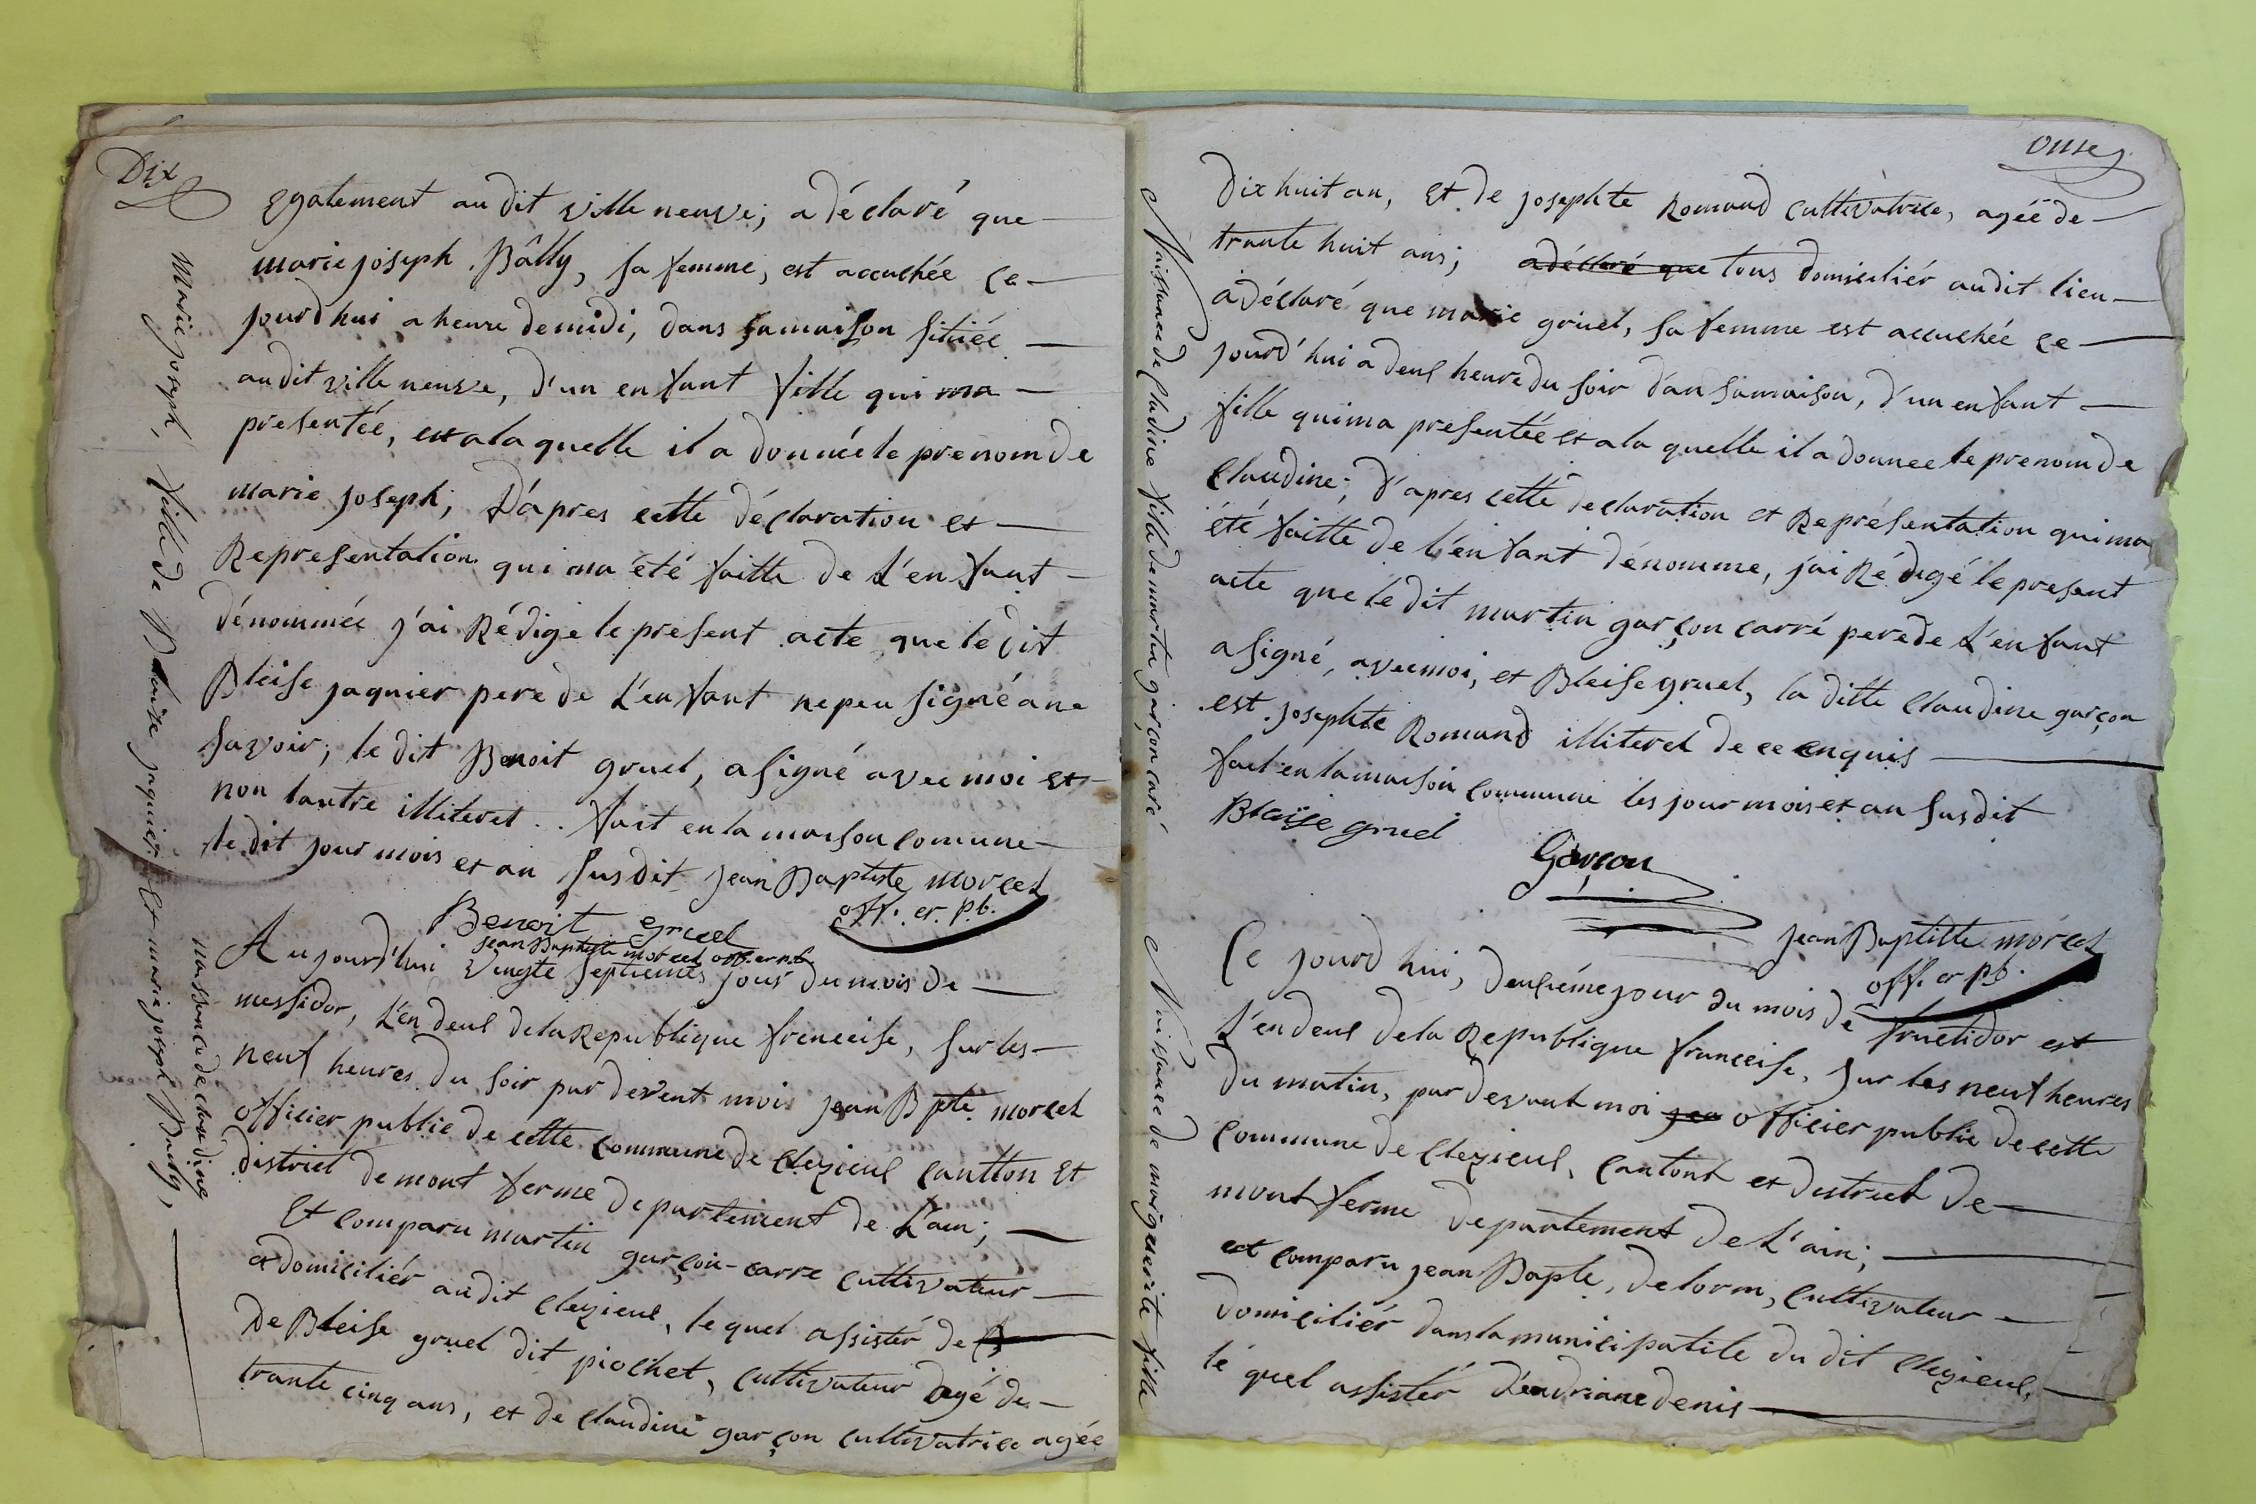 Dix
Egalement audit ville neuve; a déclaré que
marie joseph Bâlly, sa femme, est accuchée ce
jourd'hui a heure de midi, dans sa maison sitiée
audit ville neuve, d'un enfant fille qui ma
presentée, et a la quelle il a donnée le prenom de
marie joseph; D'apres cette déclaration et
Representation qui ma été faitte de L'enfant
dénommée j'ai Rédigé le present acte que le dit
Bleise jaquier pere de L'enfant ne peu signé a ne
savoir; le dit Benoit gruel, a signé avec moi et
non lautre illiteret .. fait en la maison comune
le dit jour mois et an susdit jean Baptiste morcel
off. er. p.b.
Benoit gruel
jean Baptiste morcel off. er p.b.
Marie joseph, fille de Blaize jaquier Et marie joseph Bally,
Aujourd'hui vingte septiemes jour du mois de
messidor, L'en deul de la Republique frenceise, sur les
neuf heures du soir par devent moi jean Bpte morcel
officier public de cette commune de Clezieul cantton Et
district de mont ferme departement de L'ain;
Et comparu martin garçon-carre cultivateur
a domiciliér audit clezieul, le quel assistér de B
De Bleise gruel dit piochet, cultivateur agé de
trante cinq ans, et de claudine garçon cultivatrice agée
naissance de claudine
onse
Dix huit an, Et de josephte Romand cultivatrice, agée de
trante huit ans; a déclaré que tous domiciliér audit lieu
a déclaré que marie gruel, sa femme est accuchée ce
jourd'hui a deul heure du soir dan sa maison, d'un enfant
fille qui ma presentée et a la quelle il a donnee le prenom de
Claudine; d'apres cette declaration et Représentation qui ma
été faitte de L'enfant dénomme, j'ai Rédigé le present
acte que le dit martin garçon carré pere de L'enfant
a signé, avec moi, et Bleise gruel, la ditte claudine garçon
est josephte Romand illiteret de ce enquis
fait en la maison commune les jour mois et an susdit
Blaise gruel
Garçon
jean Baptiste morcel
off. er p.b.
Naissance de Claudine fille de martin garçon carré
Ce jourd'hui, deusiéme jour du mois de fructidor est
L'en deul de la Republique franceise, sur les neuf heures
du matin, par devant moi jea officier public de cette
commune de Clezieul, cantont et district de
mont ferme departement de L'ain;
est comparu jean Bapte, delorm, cultivateur
domiciliér dans la municipalite du dit clezieul,
le quel assistér d'eadriane denis
Naissance de margueritte fille